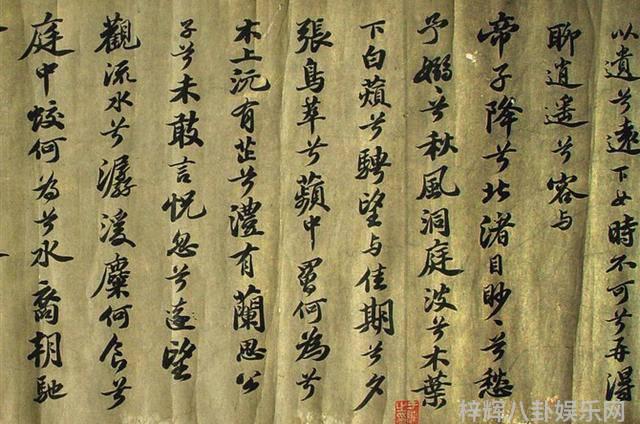 以遺兮遠下女時不可兮再得
聊逍遙兮容与
帝子降兮北渚目眇〻兮愁
予嫋〻兮秋風洞庭波兮木葉
下白蘋兮騁望与佳期兮夕
張鳥萃兮蘋中罾何為兮
木上沅有芷兮澧有蘭思公
子兮未敢言怳忽兮遠望
觀流水兮潺湲麋何食兮
庭中蛟何為兮水裔朝馳
梓辉八卦娱乐网